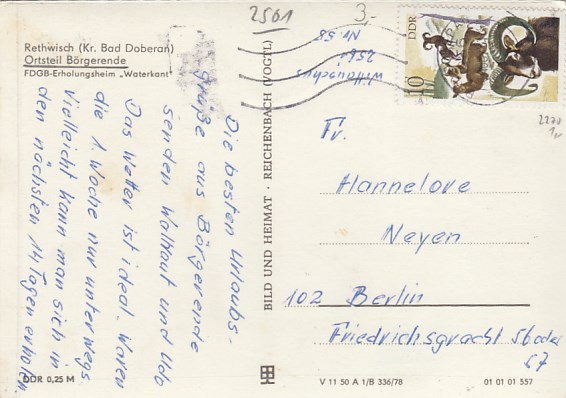 2501
3,-
Rethwisch (Kr. Bad Doberan)
Ortsteil Börgerende
FDGB-Erholungsheim „Waterkant"
Die besten Urlaubs-
grüße aus Börgerende
senden Waltraut und Udo
Das Wetter ist ideal. Waren
die 1. Woche nur unterwegs
vielleicht kann man sich in
den nächsten 14 Tagen erholen
DDR 0,25 M
BILD UND HEIMAT · REICHENBACH (VOGTL)
DDR
10
2561
Nr. 58
2270
Fr.
Hannelore
Neyen
102 Berlin
Friedrichsgracht 56 oder
57
V 11 50 A 1/B 336/78
01 01 01 557